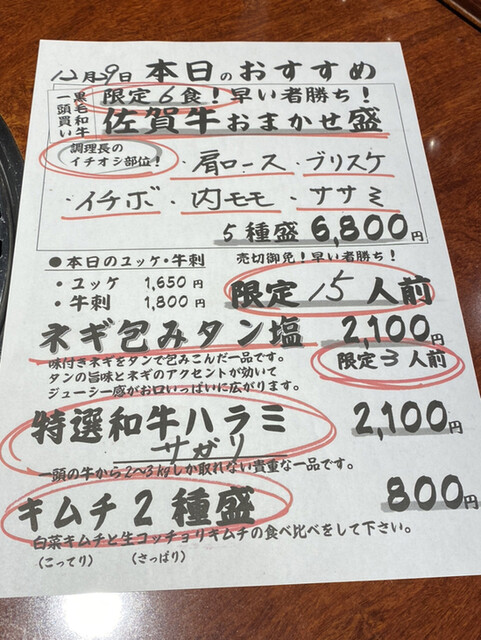 12月29日 本日のおすすめ
黒毛和牛一頭買い
限定6食!早い者勝ち!
佐賀牛おまかせ盛
調理長のイチオシ部位!
・肩ロース・ブリスケ
・イチボ・内モモ・ササミ
5種盛 6,800円
●本日のユッケ・牛刺
・ユッケ 1,650円
・牛刺 1,800円
売切御免!早い者勝ち!
限定 15 人前
ネギ包みタン塩 2,100円
味付きネギをタンで包みこんだ一品です。
タンの旨味とネギのアクセントが効いて
ジューシー感がお口いっぱいに広がります。
限定 3 人前
特選和牛ハラミ 2,100円
サガリ
一頭の牛から2〜3kgしか取れない貴重な一品です。
キムチ2種盛 800円
白菜キムチと生コッチョリキムチの食べ比べをして下さい。
(こってり) (さっぱり)